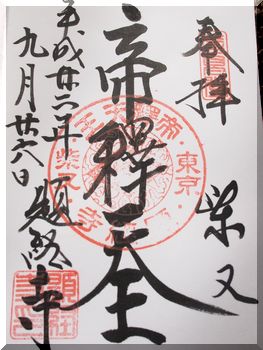 奉拝
柴又
帝釋天王
平成廿二年
九月廿六日
題経寺